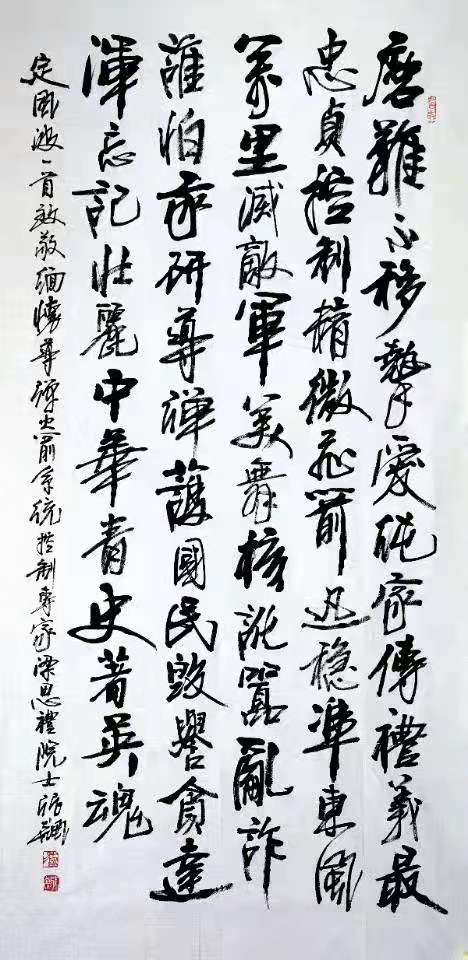 磨難不移摯愛純家傳禮義最
忠貞控制精微飛箭迅穩準東風
萬里滅敵軍美舞核訛囂亂詐
誰怕我研導彈護國民毀譽貧達
渾忘記壯麗中華青史著英魂
定風波一首致敬緬懷導彈火箭系統控制專家梁思禮院士